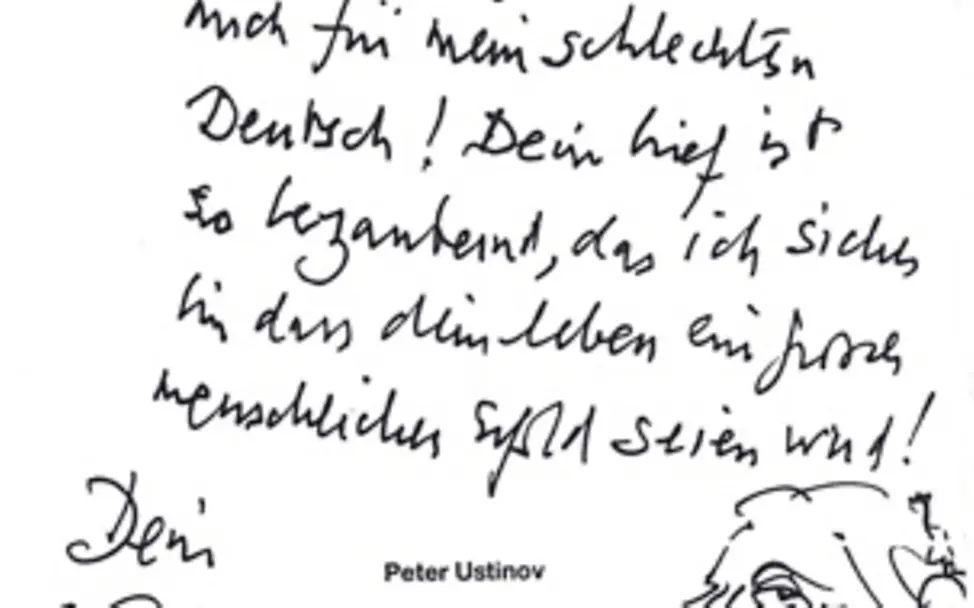 mich für mein schlechten
Deutsch! Dein brief ist
so bezaubernd, das ich sicher
bin dass dein leben ein grosser
menschlicher Erfold seien wird!
Dein
Peter Ustinov